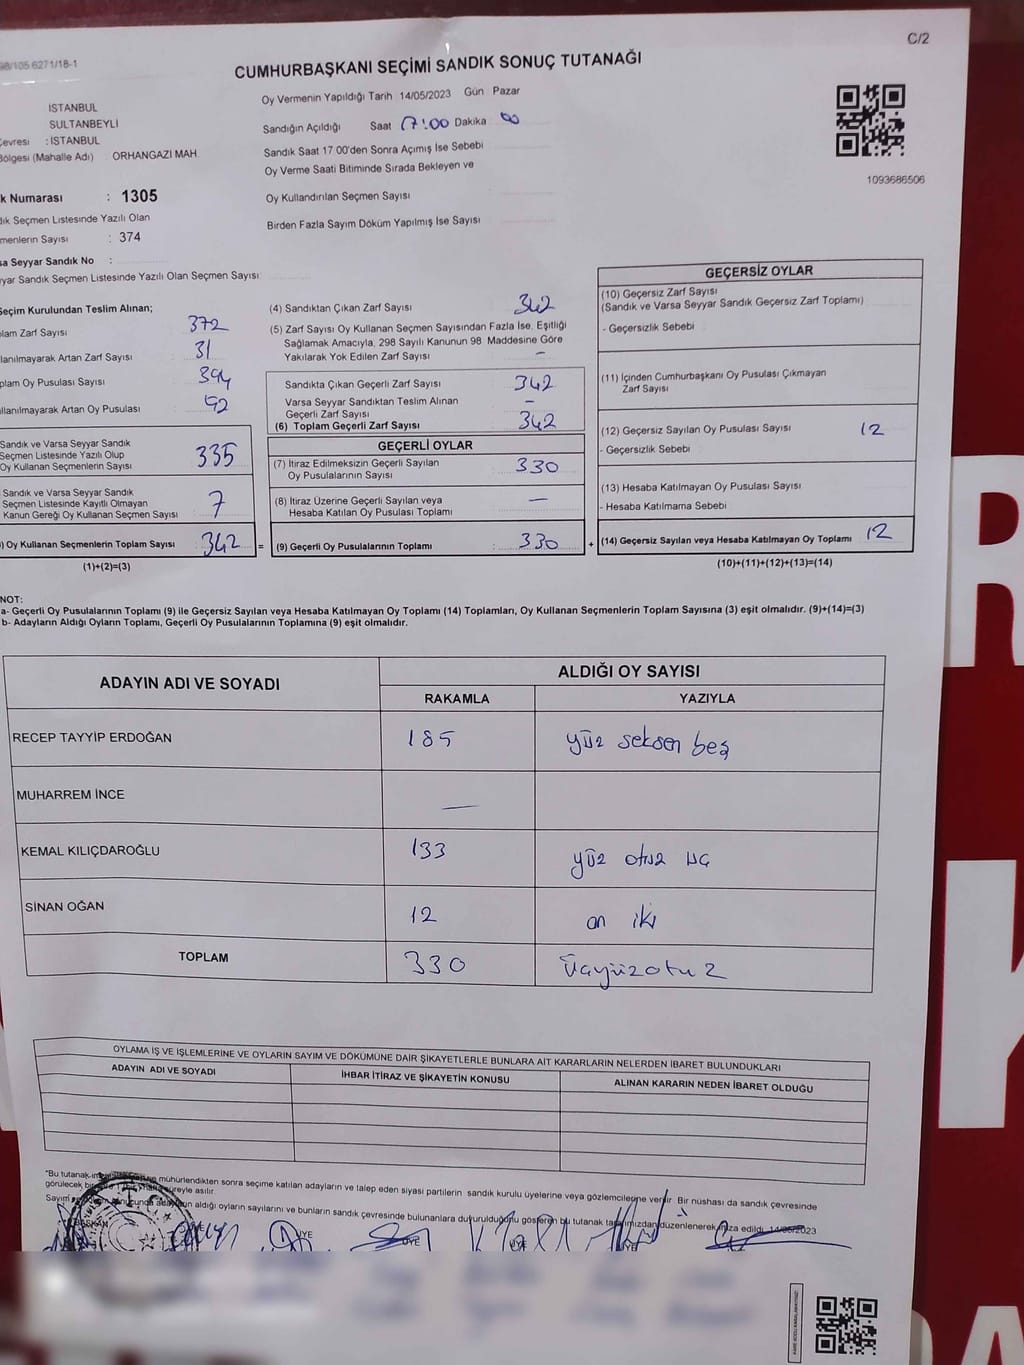 C/2
98/105 6271/18-1
CUMHURBAŞKANI SEÇİMİ SANDIK SONUÇ TUTANAĞI
İSTANBUL
SULTANBEYLİ
Çevresi : İSTANBUL
Bölgesi (Mahalle Adı) : ORHANGAZİ MAH.
k Numarası : 1305
dık Seçmen Listesinde Yazılı Olan
menlerin Sayısı : 374
sa Seyyar Sandık No :
yyar Sandık Seçmen Listesinde Yazılı Olan Seçmen Sayısı:
Oy Vermenin Yapıldığı Tarih 14/05/2023 Gün Pazar
Sandığın Açıldığı Saat 17:00 Dakika 00
Sandık Saat 17.00'den Sonra Açımış İse Sebebi
Oy Verme Saati Bitiminde Sırada Bekleyen ve
Oy Kullandırılan Seçmen Sayısı
Birden Fazla Sayım Döküm Yapılmış İse Sayısı
1093686506
Seçim Kurulundan Teslim Alınan;
lam Zarf Sayısı 372
lanılmayarak Artan Zarf Sayısı 31
plam Oy Pusulası Sayısı 394
llanılmayarak Artan Oy Pusulası 52
Sandık ve Varsa Seyyar Sandık
Seçmen Listesinde Yazılı Olup
Oy Kullanan Seçmenlerin Sayısı 335
Sandık ve Varsa Seyyar Sandık
Seçmen Listesinde Kayıtlı Olmayan
Kanun Gereği Oy Kullanan Seçmen Sayısı 7
) Oy Kullanan Seçmenlerin Toplam Sayısı 342 =
(1)+(2)=(3)
(4) Sandıktan Çıkan Zarf Sayısı 342
(5) Zarf Sayısı Oy Kullanan Seçmen Sayısından Fazla İse, Eşitliği
Sağlamak Amacıyla, 298 Sayılı Kanunun 98 Maddesine Göre
Yakılarak Yok Edilen Zarf Sayısı -
Sandıkta Çıkan Geçerli Zarf Sayısı 342
Varsa Seyyar Sandıktan Teslim Alınan
Geçerli Zarf Sayısı -
(6) Toplam Geçerli Zarf Sayısı 342
GEÇERLİ OYLAR
(7) İtiraz Edilmeksizin Geçerli Sayılan
Oy Pusulalarının Sayısı 330
(8) İtiraz Üzerine Geçerli Sayılan veya
Hesaba Katılan Oy Pusulası Toplamı -
(9) Geçerli Oy Pusulalarının Toplamı : 330 +
GEÇERSİZ OYLAR
(10) Geçersiz Zarf Sayısı
(Sandık ve Varsa Seyyar Sandık Geçersiz Zarf Toplamı)
- Geçersizlik Sebebi
(11) İçinden Cumhurbaşkanı Oy Pusulası Çıkmayan
Zarf Sayısı
(12) Geçersiz Sayılan Oy Pusulası Sayısı 12
- Geçersizlik Sebebi
(13) Hesaba Katılmayan Oy Pusulası Sayısı
- Hesaba Katılmama Sebebi
(14) Geçersiz Sayılan veya Hesaba Katılmayan Oy Toplamı 12
(10)+(11)+(12)+(13)=(14)
NOT:
a- Geçerli Oy Pusulalarının Toplamı (9) ile Geçersiz Sayılan veya Hesaba Katılmayan Oy Toplamı (14) Toplamları, Oy Kullanan Seçmenlerin Toplam Sayısına (3) eşit olmalıdır. (9)+(14)=(3)
b- Adayların Aldığı Oyların Toplamı, Geçerli Oy Pusulalarının Toplamına (9) eşit olmalıdır.
ADAYIN ADI VE SOYADI
ALDIĞI OY SAYISI
RAKAMLA YAZIYLA
RECEP TAYYİP ERDOĞAN 185 yüz seksen beş
MUHARREM İNCE -
KEMAL KILIÇDAROĞLU 133 yüz otuz üç
SİNAN OĞAN 12 on iki
TOPLAM 330 Üçyüzotuz
OYLAMA İŞ VE İŞLEMLERİNE VE OYLARIN SAYIM VE DÖKÜMÜNE DAİR ŞİKAYETLERLE BUNLARA AİT KARARLARIN NELERDEN İBARET BULUNDUKLARI
ADAYIN ADI VE SOYADI İHBAR İTİRAZ VE ŞİKAYETİN KONUSU ALINAN KARARIN NEDEN İBARET OLDUĞU
"Bu tutanak mühürlendikten sonra seçime katılan adayların ve talep eden siyasi partilerin sandık kurulu üyelerine veya gözlemcilerine verilir. Bir nüshası da sandık çevresinde
görülecek bir süreyle asılır
Sayım aldığı oyların sayılarını ve bunların sandık çevresinde bulunanlara duyurulduğunu gösteren bu tutanak tarafımızdan düzenlenerek imza edildi. 14/05/2023
BAŞKAN ÜYE ÜYE ÜYE ÜYE